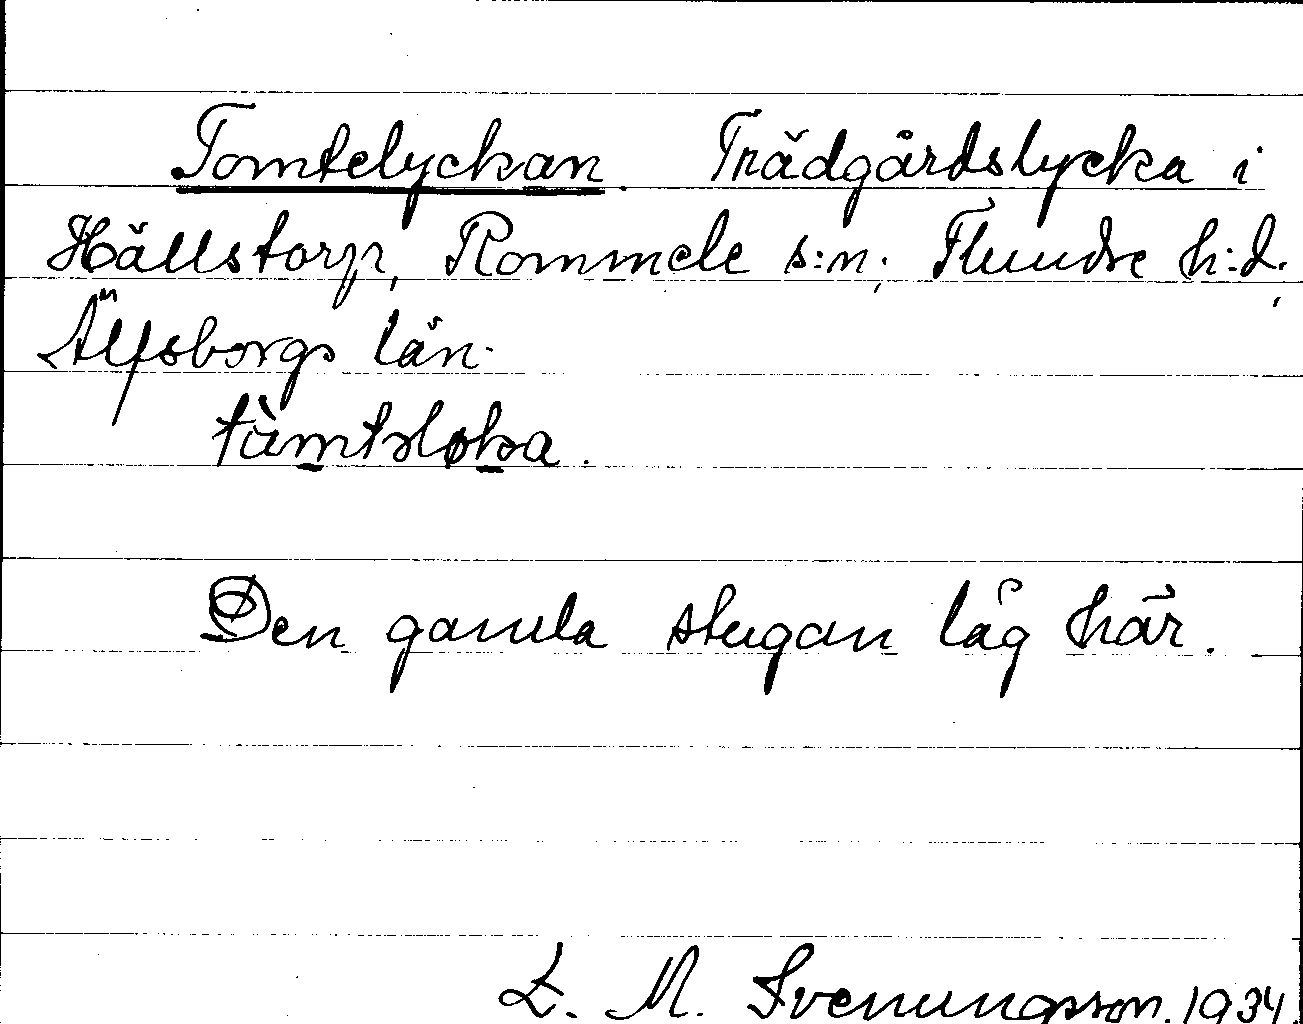 Tomtelyckan. Trädgårdslycka i
Hällstorp, Rommele s:n; Flundre h:d,
Älfsborgs län.
tàmtsløka.
Den gamla stugan låg här.
E. M. Svenungsson. 1934.